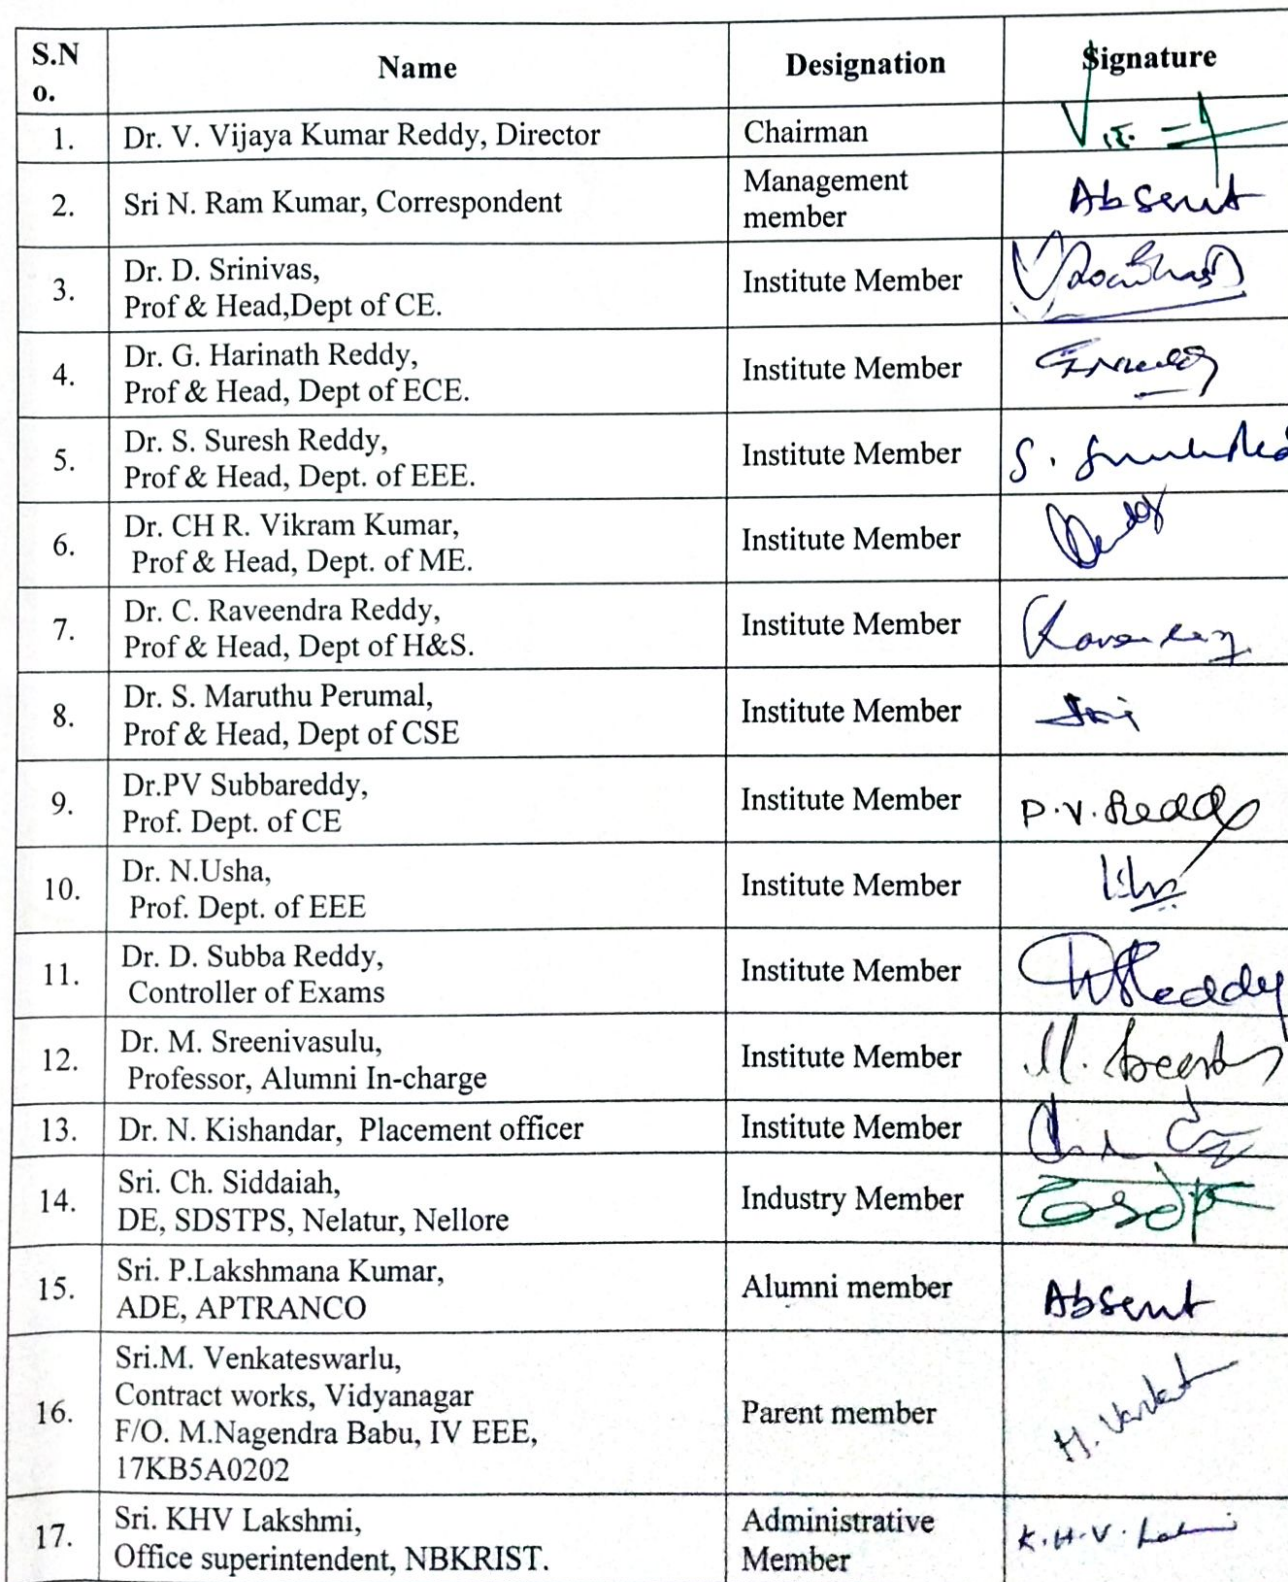 S.N
o.
Name
Designation
Signature
1.
Dr. V. Vijaya Kumar Reddy, Director
Chairman
2.
Sri N. Ram Kumar, Correspondent
Management
member
Absent
3.
Dr. D. Srinivas,
Prof & Head,Dept of CE.
Institute Member
4.
Dr. G. Harinath Reddy,
Prof & Head, Dept of ECE.
Institute Member
5.
Dr. S. Suresh Reddy,
Prof & Head, Dept. of EEE.
Institute Member
6.
Dr. CH R. Vikram Kumar,
Prof & Head, Dept. of ME.
Institute Member
7.
Dr. C. Raveendra Reddy,
Prof & Head, Dept of H&S.
Institute Member
8.
Dr. S. Maruthu Perumal,
Prof & Head, Dept of CSE
Institute Member
9.
Dr.PV Subbareddy,
Prof. Dept. of CE
Institute Member
P.V. Reddy
10.
Dr. N.Usha,
Prof. Dept. of EEE
Institute Member
11.
Dr. D. Subba Reddy,
Controller of Exams
Institute Member
12.
Dr. M. Sreenivasulu,
Professor, Alumni In-charge
Institute Member
13.
Dr. N. Kishandar, Placement officer
Institute Member
14.
Sri. Ch. Siddaiah,
DE, SDSTPS, Nelatur, Nellore
Industry Member
15.
Sri. P.Lakshmana Kumar,
ADE, APTRANCO
Alumni member
Absent
16.
Sri.M. Venkateswarlu,
Contract works, Vidyanagar
F/O. M.Nagendra Babu, IV EEE,
17KB5A0202
Parent member
M. Venkat
17.
Sri. KHV Lakshmi,
Office superintendent, NBKRIST.
Administrative
Member